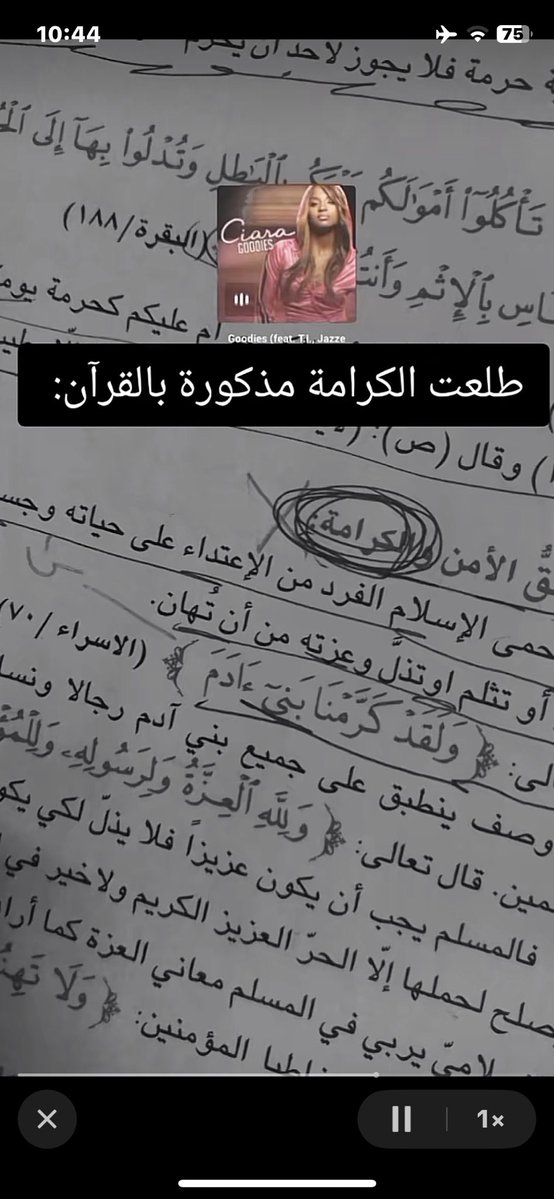 10:44
75
ة حرمة فلا يجوز لاحد ان يحرم
تَأْكُلُوٓا۟ أَمْوَٰلَكُم بَيْنَكُم بِٱلْبَٰطِلِ وَتُدْلُوا۟ بِهَآ إِلَى
(البقرة/١٨٨)
Ciara
GOODIES
بِٱلْإِثْمِ
عليكم كحرمة
Goodies (feat. T.I., Jazze
طلعت الكرامة مذكورة بالقرآن:
وقال (ص):
الأمن والكرامة:
حمى الإسلام الفرد من الإعتداء على حياته
أو تثلم اوتذلّ وعزته من أن تُهان.
وَلَقَدْ كَرَّمْنَا بَنِىٓ ءَادَمَ (الاسراء /٧٠)
وصف ينطبق على جميع بني آدم رجالا
قال تعالى: وَلِلَّهِ ٱلْعِزَّةُ وَلِرَسُولِهِۦ
فالمسلم يجب أن يكون عزيزاً فلا يذلّ لكي
لحملها إلّا الحرّ العزيز الكريم ولاخير في
يربي في المسلم معاني العزة كما
المؤمنين: وَلَا
1×